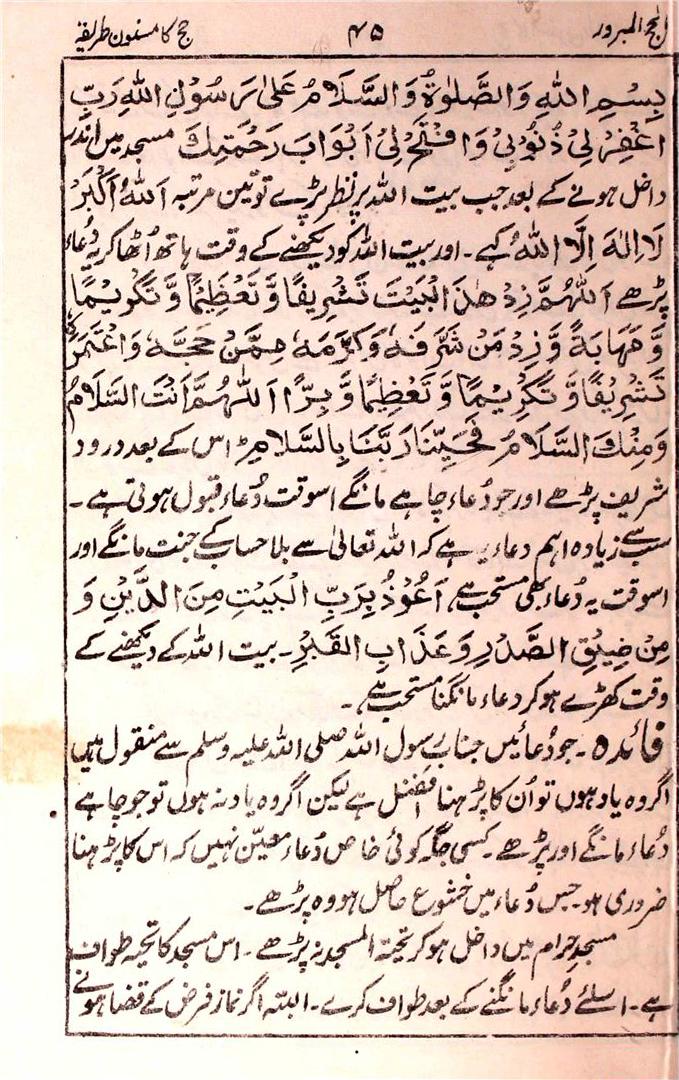 الحج المبرور ۴۵ حج کا مسنون طریقہ
بِسْمِ اللهِ وَالصَّلوٰةُ وَالسَّلَامُ عَلىٰ رَسُوْلِ اللهِ رَبِّ
اغْفِرْ لِیْ ذُنُوْبِیْ وَافْتَحْ لِیْ اَبْوَابَ رَحْمَتِكَ مسجد میں اندر
داخل ہونے کے بعد جب بیت اللہ پر نظر پڑے تو تین مرتبہ اَللهُ اَکْبَرُ
لَا اِلٰهَ اِلَّا اللهُ کہے۔ اور بیت اللہ کو دیکھنے کے وقت ہاتھ اُٹھا کر یہ دُعاء
پڑھے اَللّٰهُمَّ زِدْ هٰذَا الْبَيْتَ تَشْرِيفًا وَّ تَعْظِيْمًا وَّ تَكْرِيْمًا
وَّ مَهَابَةً وَّ زِدْ مَنْ شَرَّفَهٗ وَ كَرَّمَهٗ مِمَّنْ حَجَّهٗ وَ اعْتَمَرَهٗ
تَشْرِيْفًا وَّ تَكْرِيْمًا وَّ تَعْظِيْمًا وَّ بِرًّا اَللّٰهُمَّ اَنْتَ السَّلَامُ
وَمِنْكَ السَّلَامُ فَحَيِّنَا رَبَّنَا بِالسَّلَامِ اس کے بعد درود
شریف پڑھے اور جو دُعاء چاہے مانگے اسوقت دُعاء قبول ہوتی ہے۔
سب سے زیادہ اہم دعاء یہ ہے کہ اللہ تعالیٰ سے بلا حساب کے جنت مانگے اور
اسوقت یہ دُعاء بھی مستحب ہے، اَعُوْذُ بِرَبِّ الْبَيْتِ مِنَ الدَّيْنِ وَ
مِنْ ضِيْقِ الصَّدْرِ وَعَذَابِ القَبْرِ۔ بیت اللہ کے دیکھنے کے
وقت کھڑے ہو کر دعاء مانگنا مستحب ہے۔
فائدہ۔ جو دُعائیں جناب رسول اللہ صلی اللہ علیہ وسلم سے منقول ہیں
اگر وہ یاد ہوں تو اُن کا پڑھنا افضل ہے لیکن اگر وہ یاد نہ ہوں تو جو چاہے
دُعاء مانگے اور پڑھے۔ کسی جگہ کوئی خاص دُعاء معیّن نہیں کہ اس کا پڑھنا
ضروری ہو جس دُعاء میں خشوع حاصل ہو وہ پڑھے۔
مسجدِ حرام میں داخل ہو کر تحیۃ المسجد نہ پڑھے۔ اس مسجد کا تحیہ طواف
ہے۔ اسلئے دُعاء مانگنے کے بعد طواف کرے۔ البتہ اگر نماز فرض کے قضا ہونے